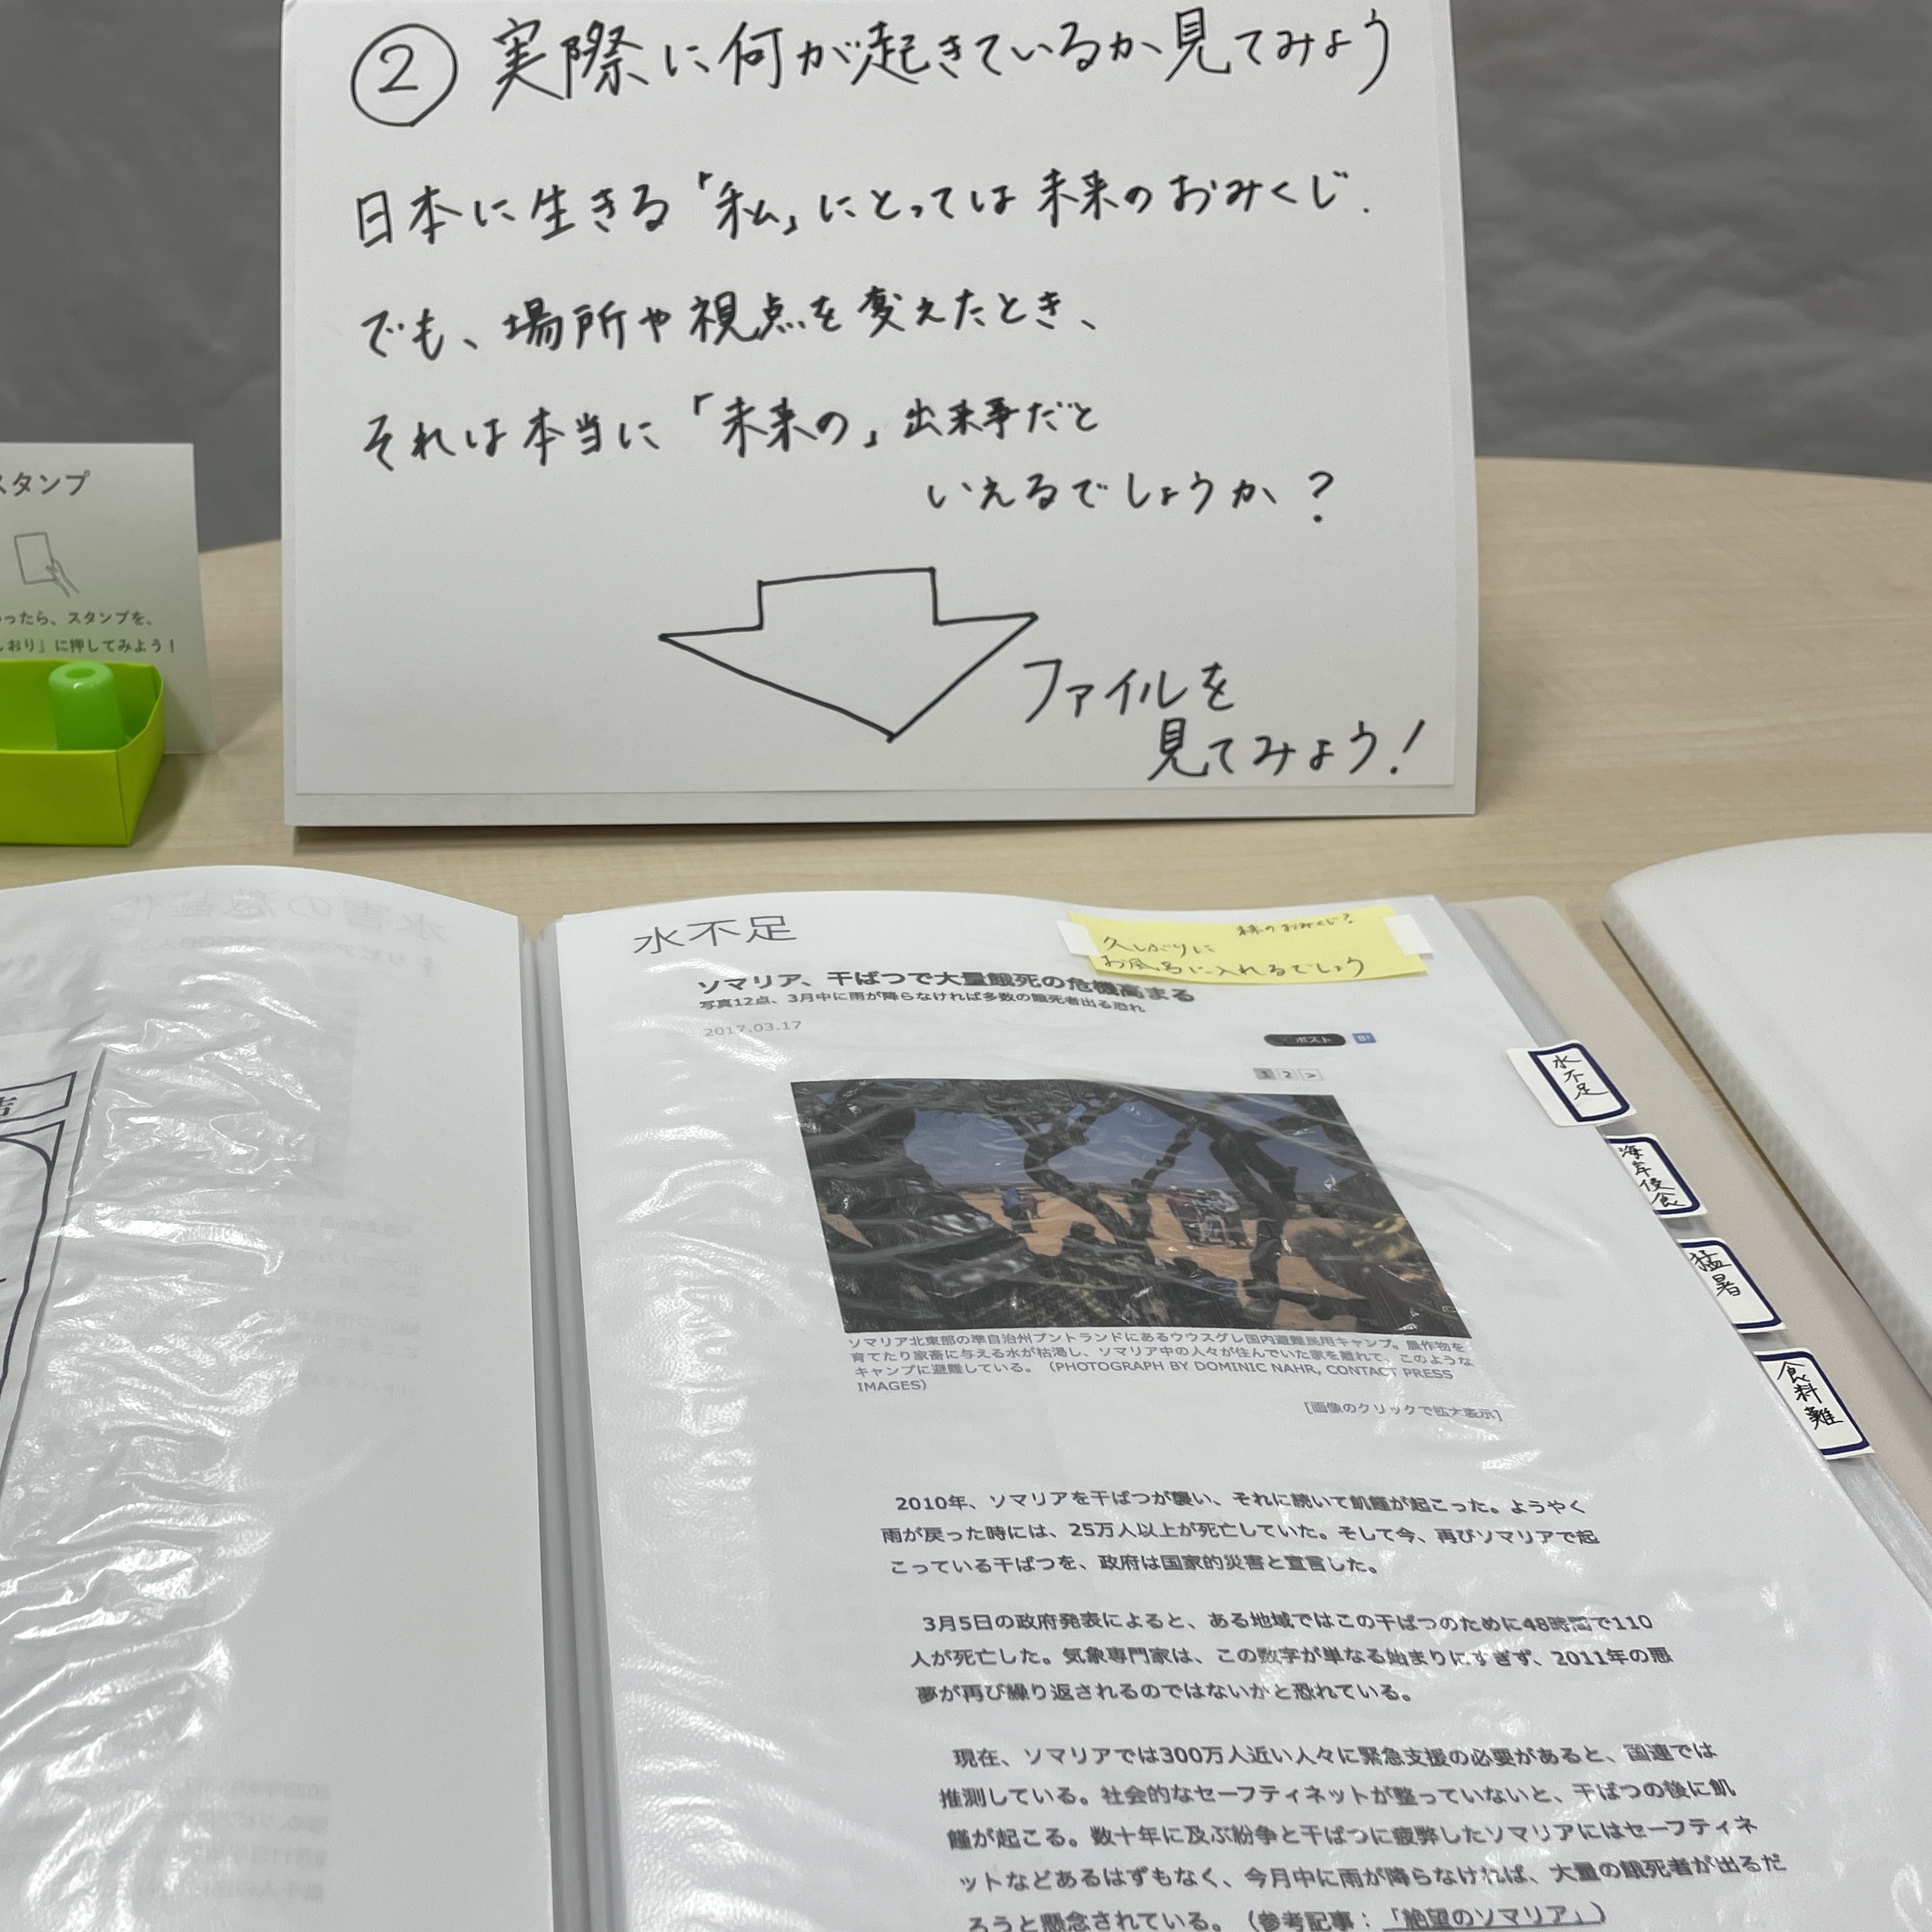 ② 実際に何が起きているか見てみよう
日本に生きる「私」にとっては未来のおみくじ.
でも、場所や視点を変えたとき、
それは本当に「未来の」出来事だと
いえるでしょうか？
ファイルを
見てみよう！
スタンプ
ったら、スタンプを、
しおり」に押してみよう！
水不足
未来のおみくじ？
久しぶりに
お風呂に入れるでしょう
ソマリア、干ばつで大量餓死の危機高まる
写真12点、3月中に雨が降らなければ多数の餓死者出る恐れ
2017.03.17
ポスト
B!
1 2 >
水不足
海岸侵食
猛暑
食料難
吉
ソマリア北東部の準自治州プントランドにあるウウスグレ国内避難民用キャンプ。農作物を
育てたり家畜に与える水が枯渇し、ソマリア中の人々が住んでいた家を離れて、このような
キャンプに避難している。（PHOTOGRAPH BY DOMINIC NAHR, CONTACT PRESS
IMAGES）
［画像のクリックで拡大表示］
2010年、ソマリアを干ばつが襲い、それに続いて飢饉が起こった。ようやく
雨が戻った時には、25万人以上が死亡していた。そして今、再びソマリアで起
こっている干ばつを、政府は国家的災害と宣言した。
3月5日の政府発表によると、ある地域ではこの干ばつのために48時間で110
人が死亡した。気象専門家は、この数字が単なる始まりにすぎず、2011年の悪
夢が再び繰り返されるのではないかと恐れている。
現在、ソマリアでは300万人近い人々に緊急支援の必要があると、国連では
推測している。社会的なセーフティネットが整っていないと、干ばつの後に飢
饉が起こる。数十年に及ぶ紛争と干ばつに疲弊したソマリアにはセーフティネ
ットなどあるはずもなく、今月中に雨が降らなければ、大量の餓死者が出るだ
ろうと懸念されている。（参考記事：「絶望のソマリア」）